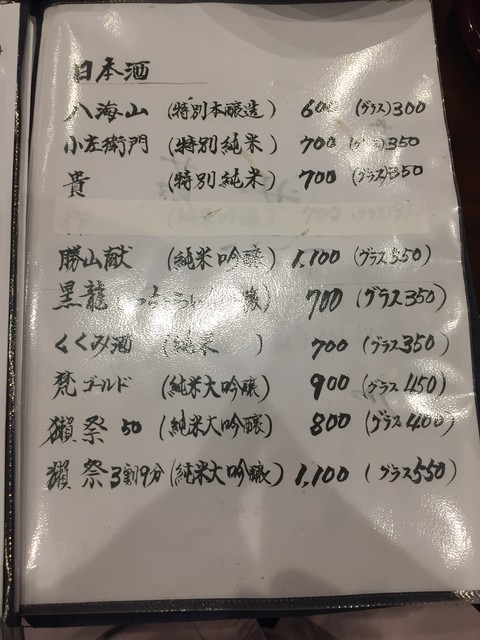 日本酒
八海山 (特別本醸造) 600 (グラス)300
小左衛門 (特別純米) 700 (グラス)350
貴 (特別純米) 700 (グラス)350
勝山献 (純米吟醸) 1,100 (グラス550)
黒龍 醸) 700 (グラス350)
くくみ酒 (純米 ) 700 (グラス350)
梵ゴールド (純米大吟醸) 900 (グラス450)
獺祭 50 (純米大吟醸) 800 (グラス400)
獺祭3割9分(純米大吟醸) 1,100 (グラス550)